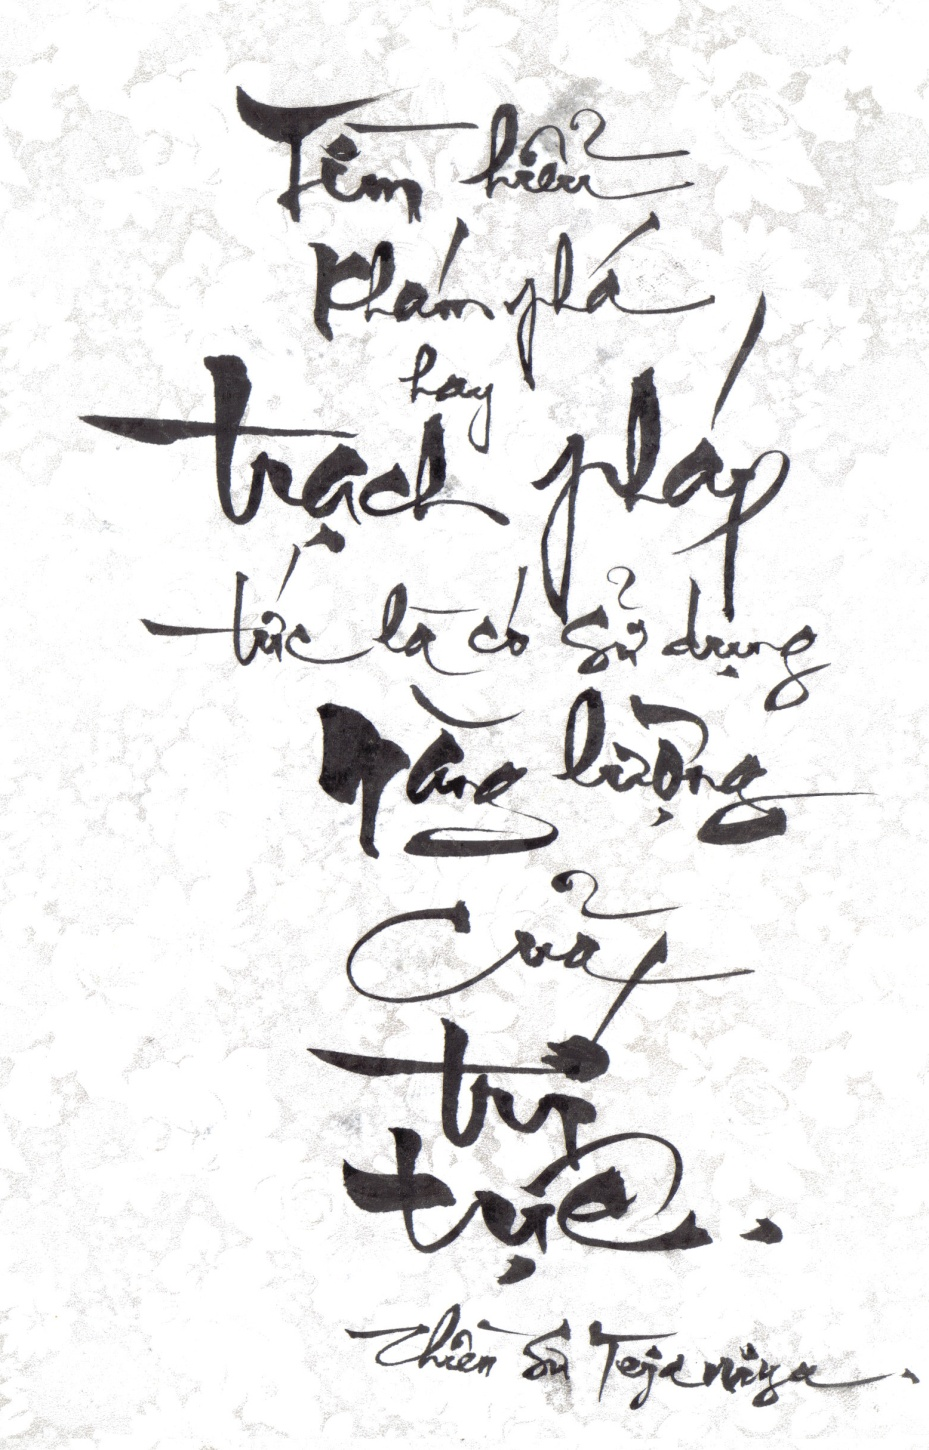 Tìm hiểu
Khám phá
hay
trạch pháp
tức là có sử dụng
năng lượng
của
trí
tuệ.
Thiền Sư Tejaniya.